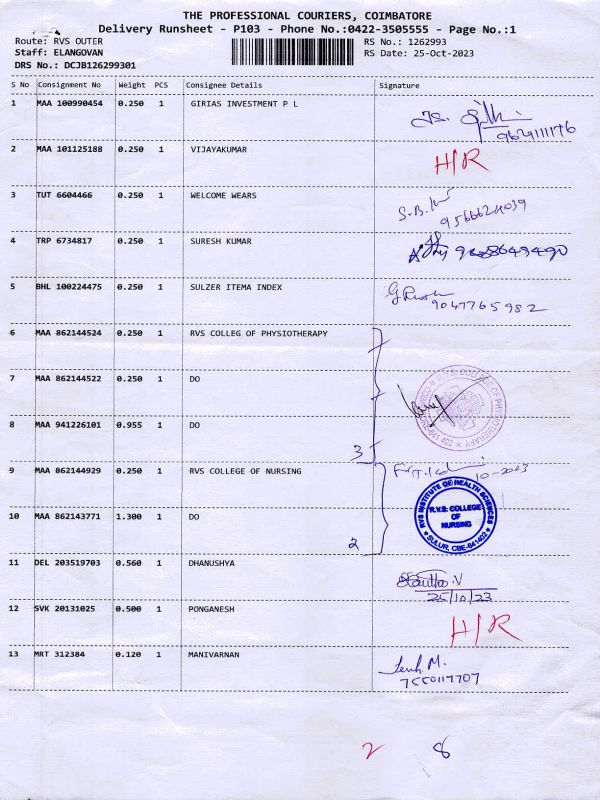 THE PROFESSIONAL COURIERS, COIMBATORE
Delivery Runsheet - P103 - Phone No.:0422-3505555 - Page No.:1
Route: RVS OUTER RS No.: 1262993
Staff: ELANGOVAN RS Date: 25-Oct-2023
DRS No.: DCJB126299301
S No Consignment No Weight PCS Consignee Details Signature
1 MAA 100990454 0.250 1 GIRIAS INVESTMENT P L
9629111176
2 MAA 101125188 0.250 1 VIJAYAKUMAR H/R
3 TUT 6604466 0.250 1 WELCOME WEARS
4 TRP 6734817 0.250 1 SURESH KUMAR
5 BHL 100224475 0.250 1 SULZER ITEMA INDEX
9047765982
6 MAA 862144524 0.250 1 RVS COLLEG OF PHYSIOTHERAPY
7 MAA 862144522 0.250 1 DO
8 MAA 941226101 0.955 1 DO
3
9 MAA 862144929 0.250 1 RVS COLLEGE OF NURSING
10-2023
RVS INSTITUTE OF HEALTH SCIENCES
R.V.S. COLLEGE
OF
NURSING
SULUR, CBE-641402
10 MAA 862143771 1.300 1 DO
2
11 DEL 203519703 0.560 1 DHANUSHYA
25/10/23
12 SVK 20131025 0.500 1 PONGANESH H/R
13 MRT 312384 0.120 1 MANIVARNAN
2 8